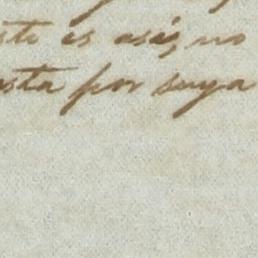 ste es así, no
sta por suya